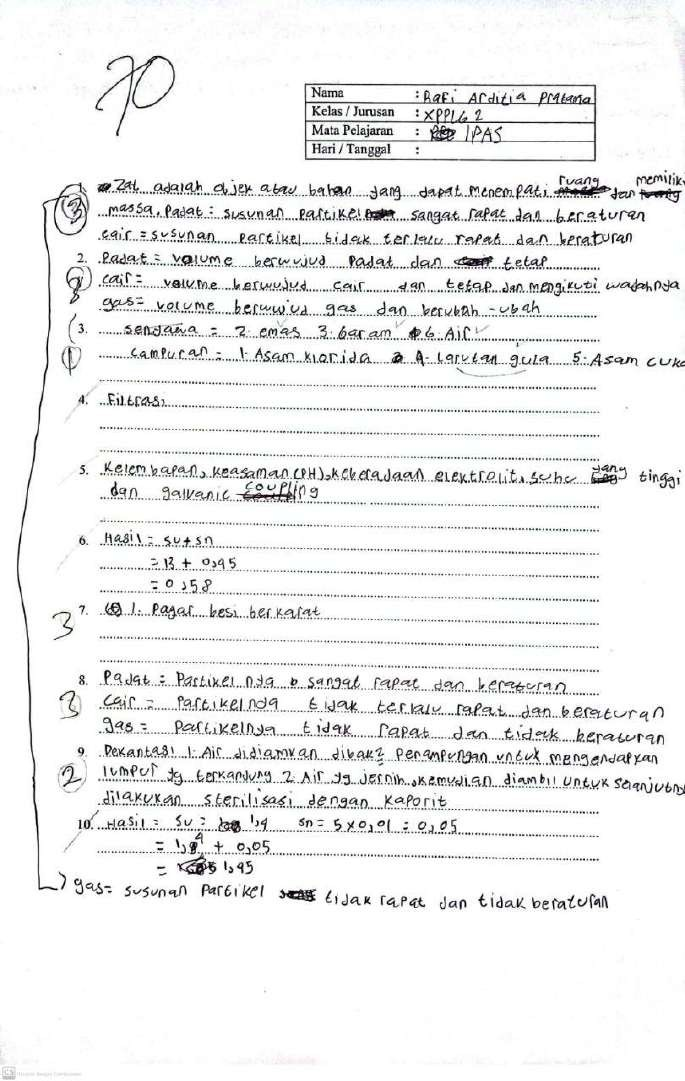 70
Nama : Rafi Arditia Pratama
Kelas / Jurusan : XPPLG 2
Mata Pelajaran : IPAS
Hari / Tanggal :
1. Zat adalah objek atau bahan yang dapat menempati ruang dan memiliki
massa. Padat = susunan partikel sangat rapat dan beraturan
cair = susunan partikel tidak terlalu rapat dan beraturan
2. Padat = volume berwujud padat dan tetap
cair = volume berwujud cair dan tetap dan mengikuti wadahnya
gas = volume berwujud gas dan berubah-ubah
3. senyawa = 2. emas 3. garam 6. Air
campuran = 1. Asam klorida 4. larutan gula 5. Asam cuka
4. Filtrasi
5. Kelembapan, keasaman (PH), keberadaan elektrolit, suhu yang tinggi
dan galvanic coupling
6. Hasil = su + sn
= 13 + 0,45
= 0,58
7. 1. Pagar besi berkarat
8. Padat = Partikelnya sangat rapat dan beraturan
cair = partikelnya tidak terlalu rapat dan beraturan
gas = partikelnya tidak rapat dan tidak beraturan
9. Dekantasi 1. Air didiamkan dibak2 penampungan untuk mengendapkan
lumpur yg terkandung 2. Air yg jernih, kemudian diambil untuk selanjutnya
dilakukan sterilisasi dengan kaporit
10. Hasil = su = 1,4 sn = 5 x 0,01 = 0,05
= 1,4 + 0,05
= 1,45
gas = susunan partikel tidak rapat dan tidak beraturan